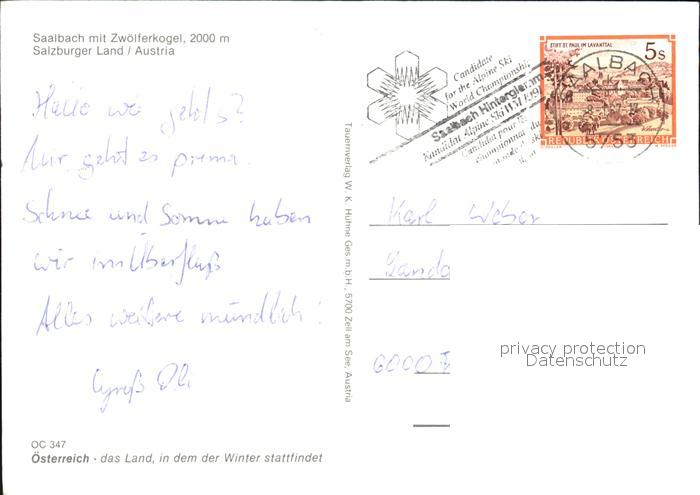 Saalbach mit Zwölferkogel, 2000 m
Salzburger Land / Austria
Hallo wie geht's?
Mir geht es prima.
Schnee und Sonne haben
wir im Überfluß
Alles weitere mündlich!
Gruß
OC 347
Österreich - das Land, in dem der Winter stattfindet
Tauernverlag W. K. Hühne Ges.m.b.H., 5700 Zell am See, Austria
Candidate
for the Alpine Ski
World Championship
Saalbach Hinterglemm
Kandidat Alpine Ski WM 1991
Candidat pour les
Championnat du
STIFT ST. PAUL IM LAVANTTAL
5 S
REPUBLIK ÖSTERREICH
SAALBACH
5753
Karl Weber
Landa
6000 F
privacy protection
Datenschutz